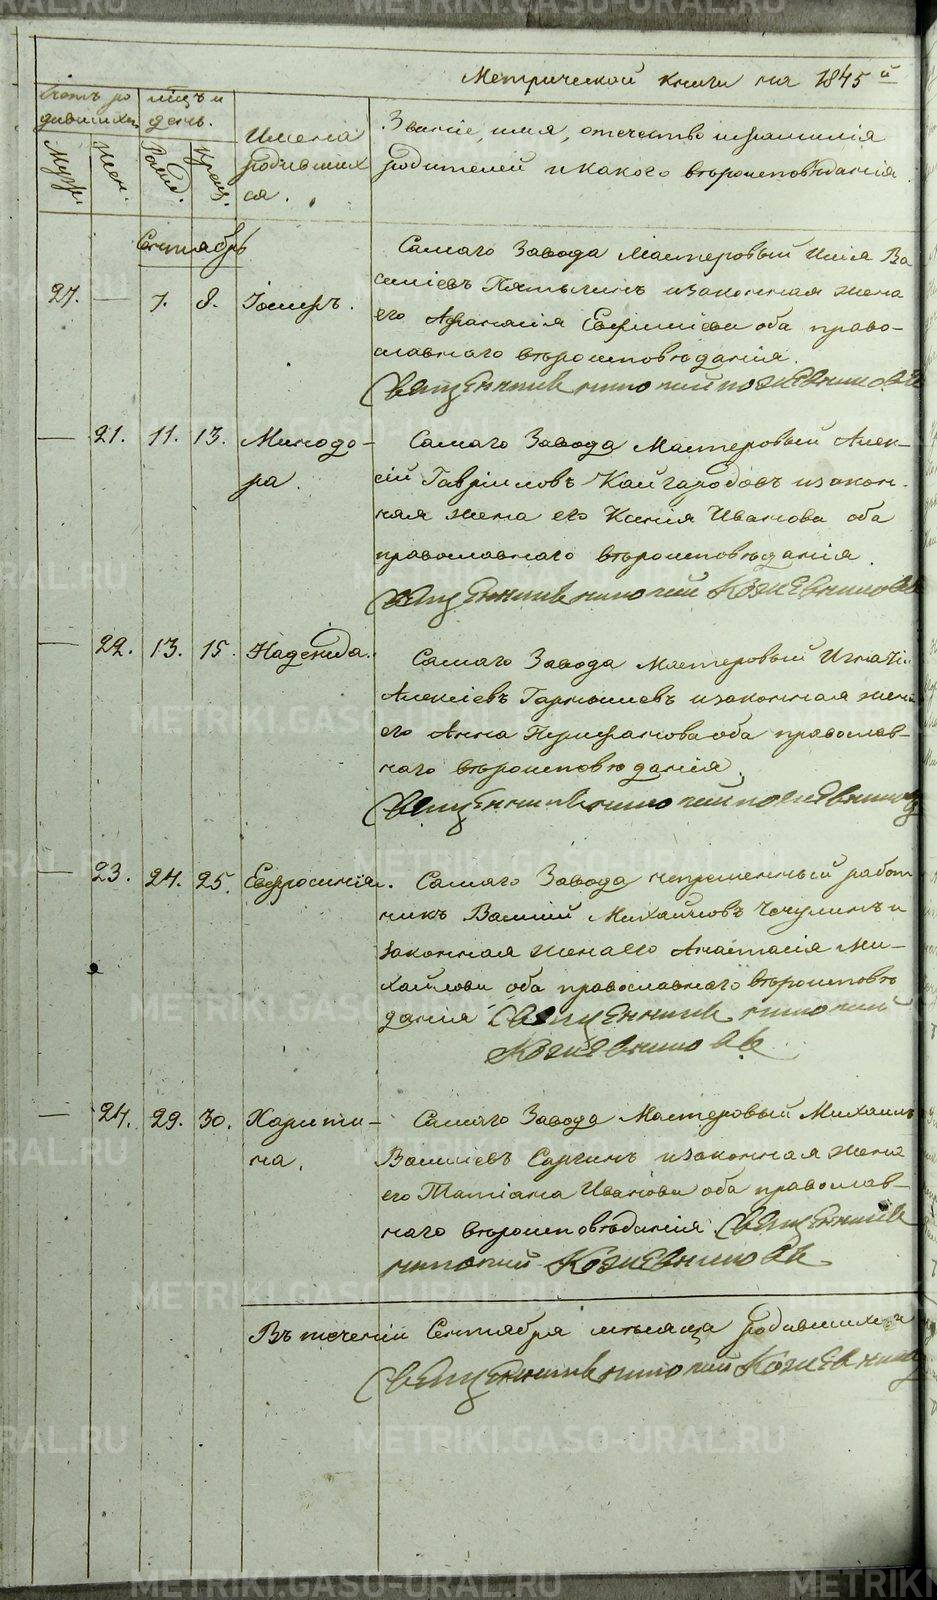 Метрической книги на 1845й
Счетъ ро
дившихъ
мцъ и
день.
Муж.
Жен.
Рожд.
Крещ.
Имена
родивших
ся.
Званіе, имя, отечество и фамилія
родителей и какого вѣроисповѣданія
Сентябрь
27. — 7. 8. Іосифъ.
Самаго Завода Мастеровый Илія Ва
силіевъ изаконная жена
его Афанасія оба право-
славнаго вѣроисповѣданія.
Священникъ Кожевниковъ
— 21. 11. 13. Минодо-
ра.
Самаго Завода Мастеровый Алек-
сій Гавріиловъ Кайгародовъ изакон-
ная жена его Ксенія Иванова оба
православнаго вѣроисповѣданія.
Священникъ Кожевниковъ
— 22. 13. 15. Надежда.
Самаго Завода Мастеровый Игнатій
Алексіевъ изаконная жена
его Анна оба православ-
наго вѣроисповѣданія.
Священникъ Кожевниковъ
— 23. 24. 25. Евфросинія.
Самаго Завода непременный работ
никъ Василій Михайловъ и
законная жена его Анастасія Ми-
хайлова оба православнаго вѣроисповѣ
данія Священникъ
Кожевниковъ
— 24. 29. 30. Харити-
на.
Самаго Завода Мастеровый Михаилъ
Василіевъ изаконная жена
его Татіана Иванова оба православ-
наго вѣроисповѣданія Священникъ
Кожевниковъ
Въ теченіи Сентября месяца родившихся
Священникъ
METRIKI.GASO-URAL.RU